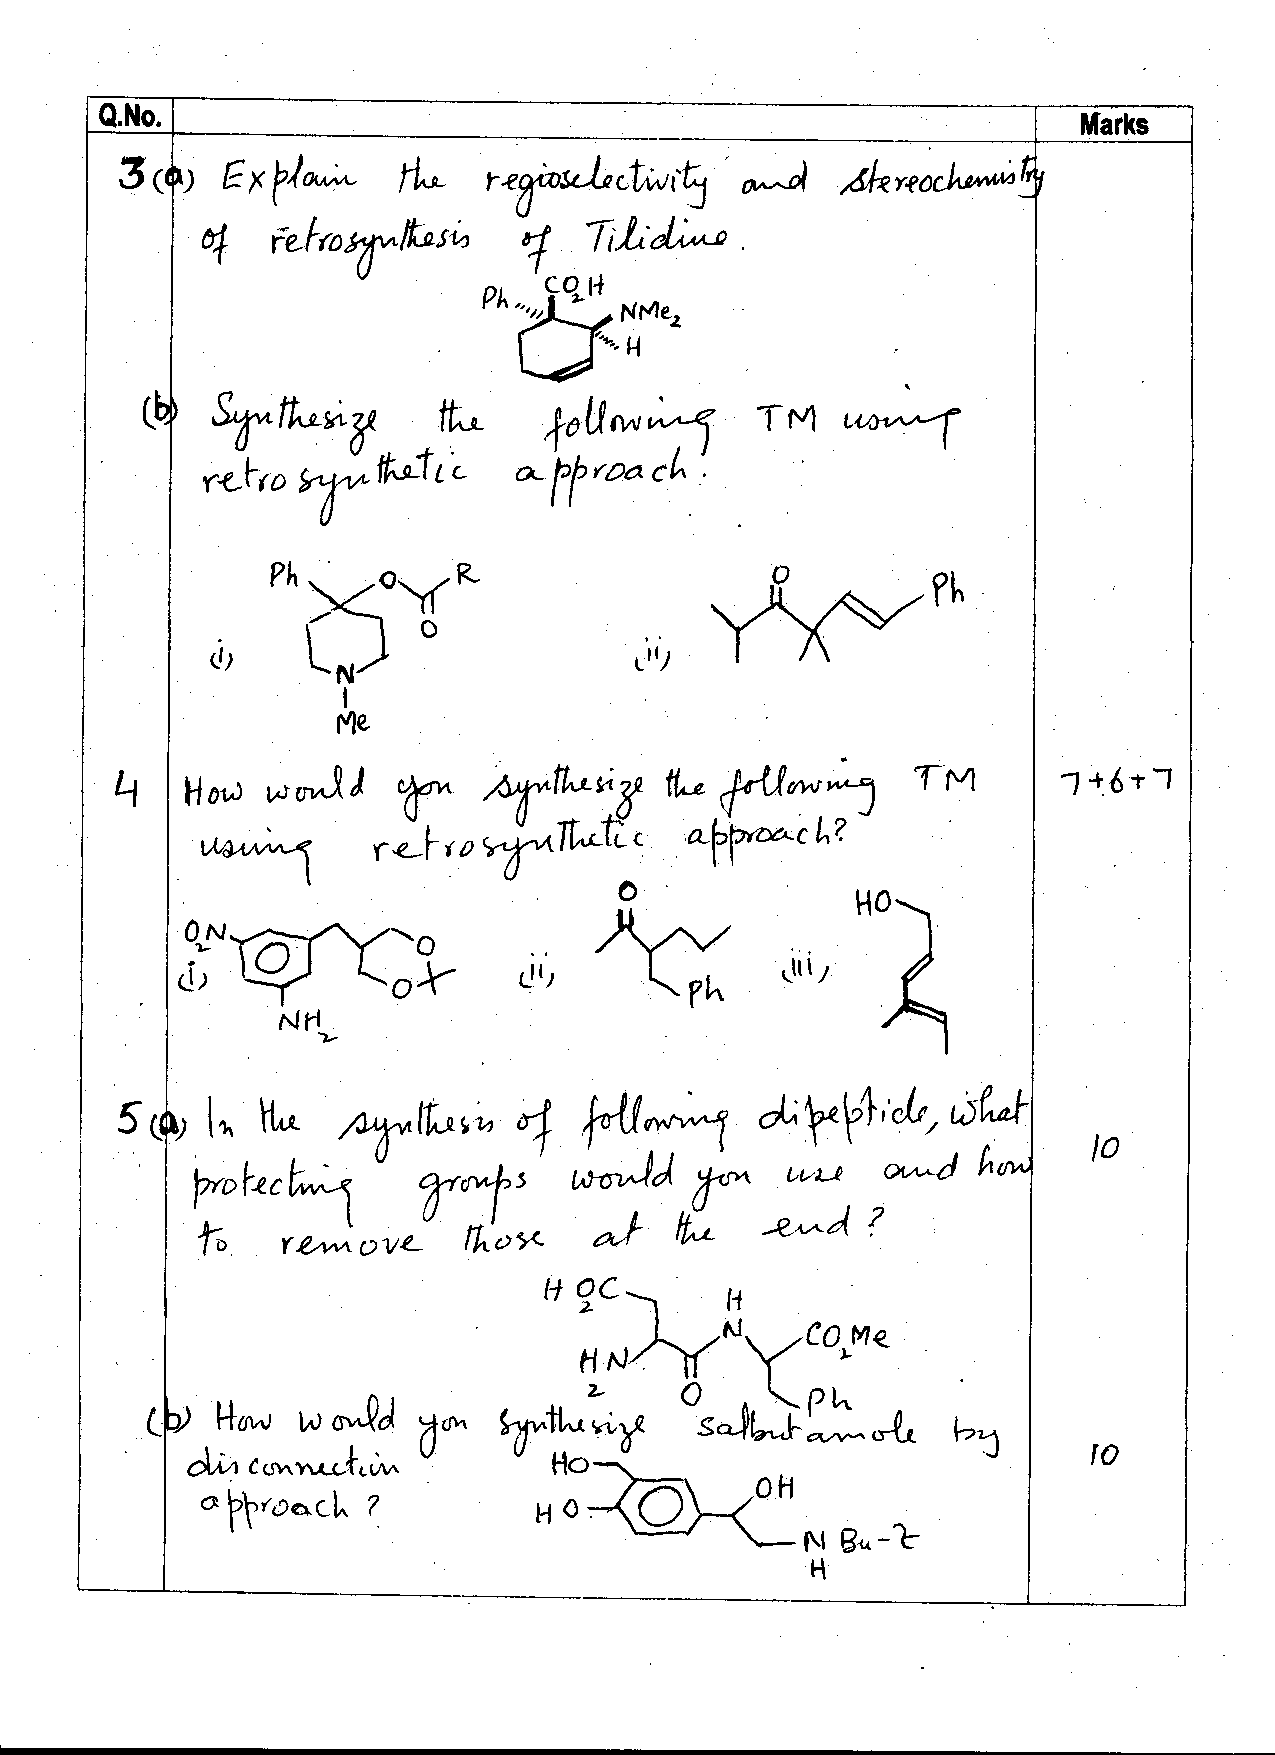 Q.No. Marks
3(a) Explain the regioselectivity and stereochemistry
of retrosynthesis of Tilidine.
CO2H
Ph NMe2
H
(b) Synthesize the following TM using
retrosynthetic approach.
Ph O R O Ph
O
(i) (ii)
N
Me
4 How would you synthesize the following TM 7+6+7
using retrosynthetic approach?
O HO
O2N O
(i) O (ii) Ph (iii)
NH2
5(a) In the synthesis of following dipeptide, what
protecting groups would you use and how 10
to remove those at the end?
HO2C H
N CO2Me
H2N
O Ph
(b) How would you synthesize salbutamole by
disconnection HO 10
approach? HO OH
N Bu-t
H